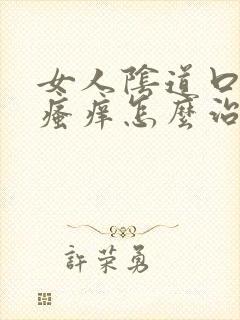 女人陰道口
瘙痒怎麼治
許荣勇